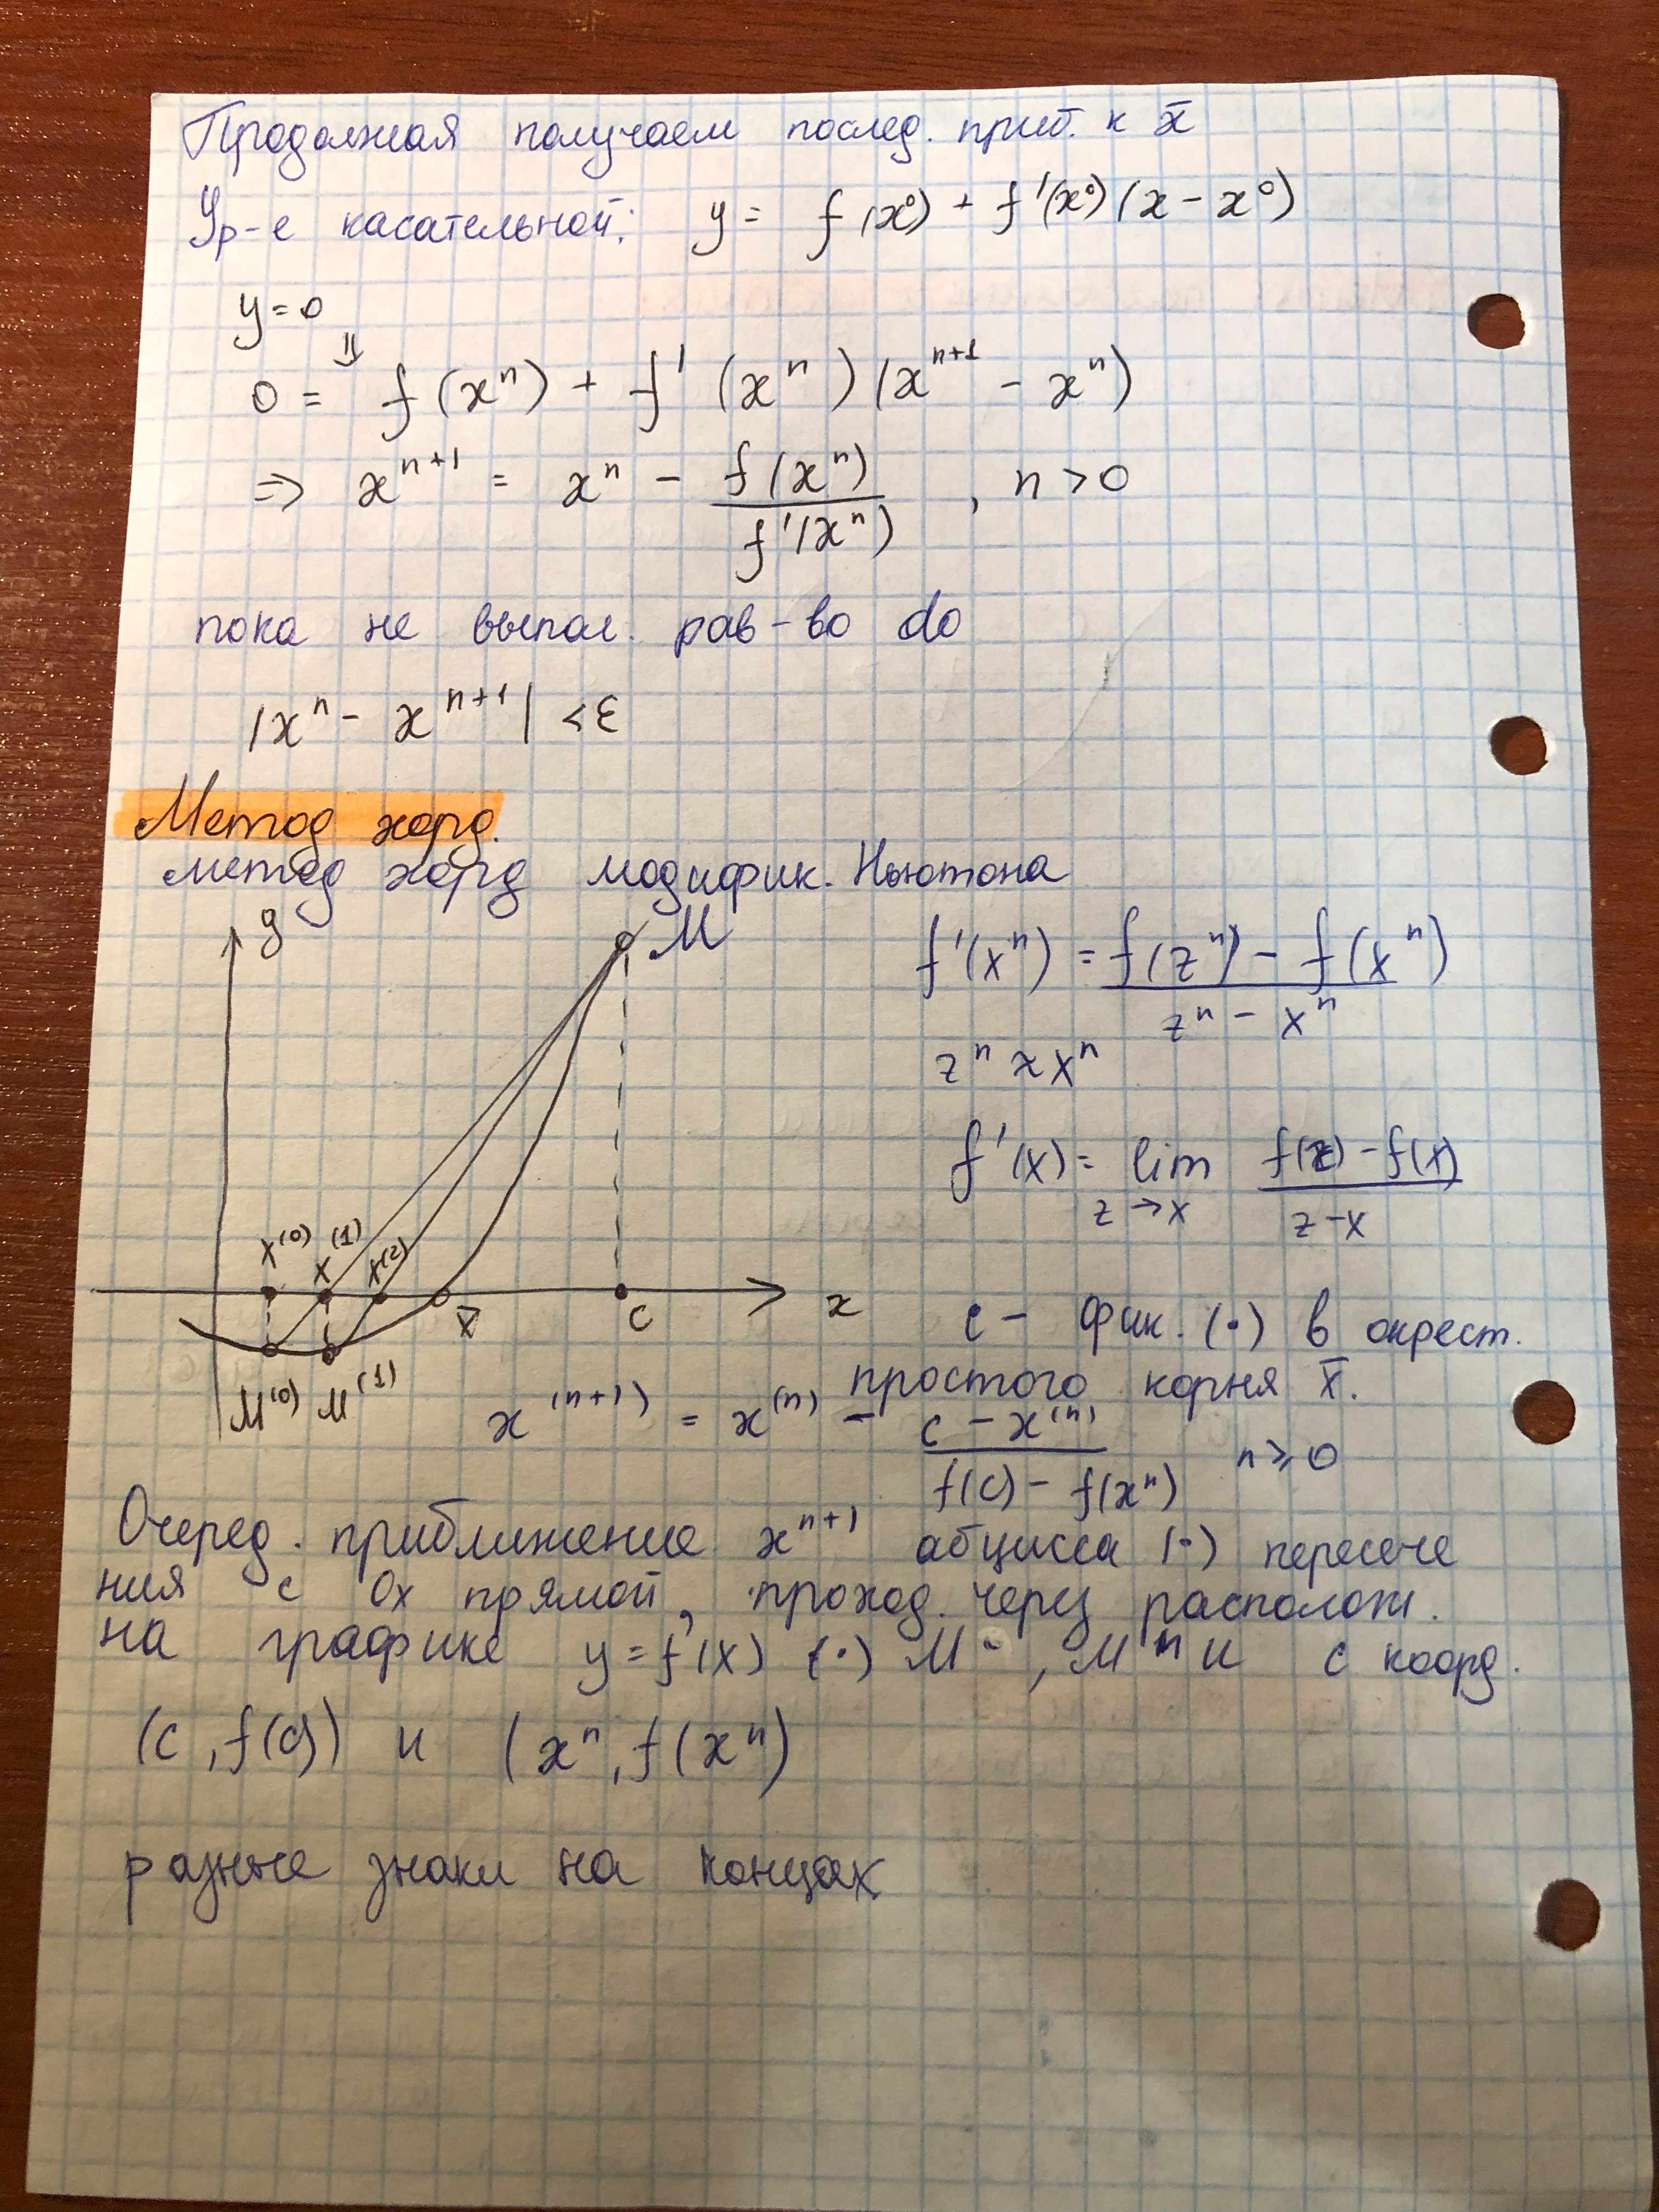 Продолжая получаем послед. приб. к x̄
Ур-е касательной: y = f(x⁰) + f'(x⁰)(x - x⁰)
y = 0
⇓
0 = f(xⁿ) + f'(xⁿ)(xⁿ⁺¹ - xⁿ)
⇒ xⁿ⁺¹ = xⁿ - f(xⁿ) / f'(xⁿ) , n > 0
пока не выпол. рав-во do
|xⁿ - xⁿ⁺¹| < ε
Метод хорд.
метод хорд модифик. Ньютона
y
M
f'(xⁿ) = f(zⁿ) - f(xⁿ) / zⁿ - xⁿ
zⁿ ≈ xⁿ
f'(x) = lim z→x f(z) - f(x) / z - x
x⁽⁰⁾ x⁽¹⁾ x⁽²⁾
x̄ c x
M⁽⁰⁾ M⁽¹⁾
c - фик. (·) в окрест.
простого корня x̄.
x⁽ⁿ⁺¹⁾ = x⁽ⁿ⁾ - c - x⁽ⁿ⁾ / f(c) - f(xⁿ) n ≥ 0
Очеред. приближение xⁿ⁺¹ абцисса (·) пересече
ния с Ox прямой, проход. через располож.
на графике y = f(x) (·) M , Mⁿ и с коорд.
(c, f(c)) и (xⁿ, f(xⁿ)
разные знаки на концах